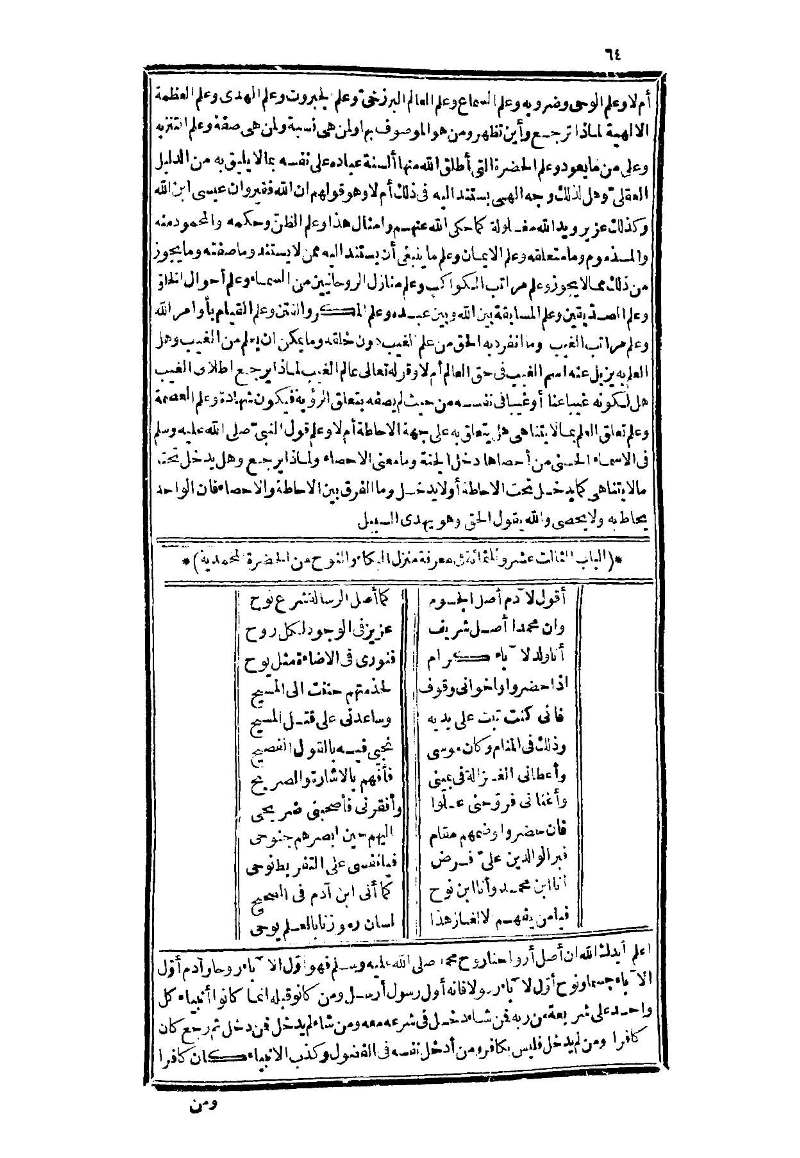 ٦٤
أم لا وعلم الوحى وضروبه وعلم السماع وعلم العالم البرزخىّ وعلم الجبروت وعلم الهدى وعلم العظمة
الالهية لماذا ترجع وأين تظهر ومن هو الموصوف بها ولمن هى نسبة ولمن هى صفة وعلم التنزيه
وعلى من ما يعود وعلم الحضرة التى أطلق الله منها ألسنة عباده على نفسه بما لا يليق به من الدليل
العقلىّ وهل لذلك وجه الهىّ يستند اليه فى ذلك أم لا وهو قولهم ان الله فقير وان عيسى ابن الله
وكذلك عزير ويد الله مغلولة كما حكى الله عنهم وامثال هذا وعلم الظنّ وحكمه والمحمود منه
والمذموم وما متعلقه وعلم الايمان وعلم ما ينبغى أن يستند اليه ممن لا يستند وما صفته وما يجوز
من ذلك مما لا يجوز وعلم مراتب الكواكب وعلم منازل الروحانيين من السماء وعلم أحوال الخلق
وعلم الصدّيقين وعلم المسابقة بين الله وبين عبده وعلم المكر والفتن وعلم القيام بأوامر الله
وعلم مراتب الغيب وما انفرد به الحق من علم الغيب دون خلقه وما يمكن ان يعلم من الغيب وهل
العلم به يزيل عنه اسم الغيب فى حق العالم أم لا وقوله تعالى عالم الغيب لماذا يرجع اطلاق الغيب
هل لكونه غيبا عنا أو غيبا فى نفسه من حيث لم يصفه بتعلق الرؤية فيكون شهادة وعلم العصمة
وعلم تعلق العلم بما لا يتناهى هل يتعلق به على جهة الاحاطة أم لا وعلم قول النبىّ صلى الله عليه وسلم
فى الاسماء الحسنى من أحصاها دخل الجنة وما معنى الاحصاء ولماذا يرجع وهل يدخل تحته
ما لا يتناهى كما يدخل تحت الاحاطة أو لا يدخل وما الفرق بين الاحاطة والاحصاء فان الواحد
يحاط به ولا يحصى والله يقول الحق وهو يهدى السبيل
*(الباب الثالث عشر وثلثمائة فى معرفة منزل البكاء والنوح من الحضرة المحمدية)*
أقول لآدم أصل الجسوم كما أصل الرسالة شرع نوح
وان محمدا أصل شريف عزيز فى الوجود لكل روح
أنا ولد لآباء كرام فنورى فى الاضاءة مثل يوح
اذا حضروا واخوانى وقوف لخدمتهم حننت الى المسيح
فانى كنت تبت على يديه وساعدنى على قتل المسيح
وذلك فى المنام وكان موسى نجيى فيه بالقول الفصيح
وأعطانى الغزالة فى يمينى فأفهم بالاشارة والصريح
وأغنانى فروحنى علوّا وأفقرنى فأصحبنى ضريحى
فان حضروا وضمهم مقام اليهم حين ابصرهم جنوحى
فبر الوالدين علىّ فرض فيا نفسى على التفريط نوحى
أنا ابن محمد وأنا ابن نوح كما أنى ابن آدم فى الصحيح
فيا من يفهم الالغاز هذا لسان رموزنا بالعلم يوحى
اعلم أيدك الله ان أصل أرواحنا روح محمد صلى الله عليه وسلم فهو أوّل الآباء روحا وآدم أوّل
الآباء جسما ونوح أوّل الآباء رسولا فانه أول رسول أرسل ومن كان قبله انما كانوا أنبياء كل
واحد على شريعة من ربه فمن شاء دخل فى شرعه معه ومن شاء لم يدخل فمن دخل ثم رجع كان
كافرا ومن لم يدخل فليس بكافر ومن أدخل نفسه فى الفضول وكذب الانبياء كان كافرا
ومن